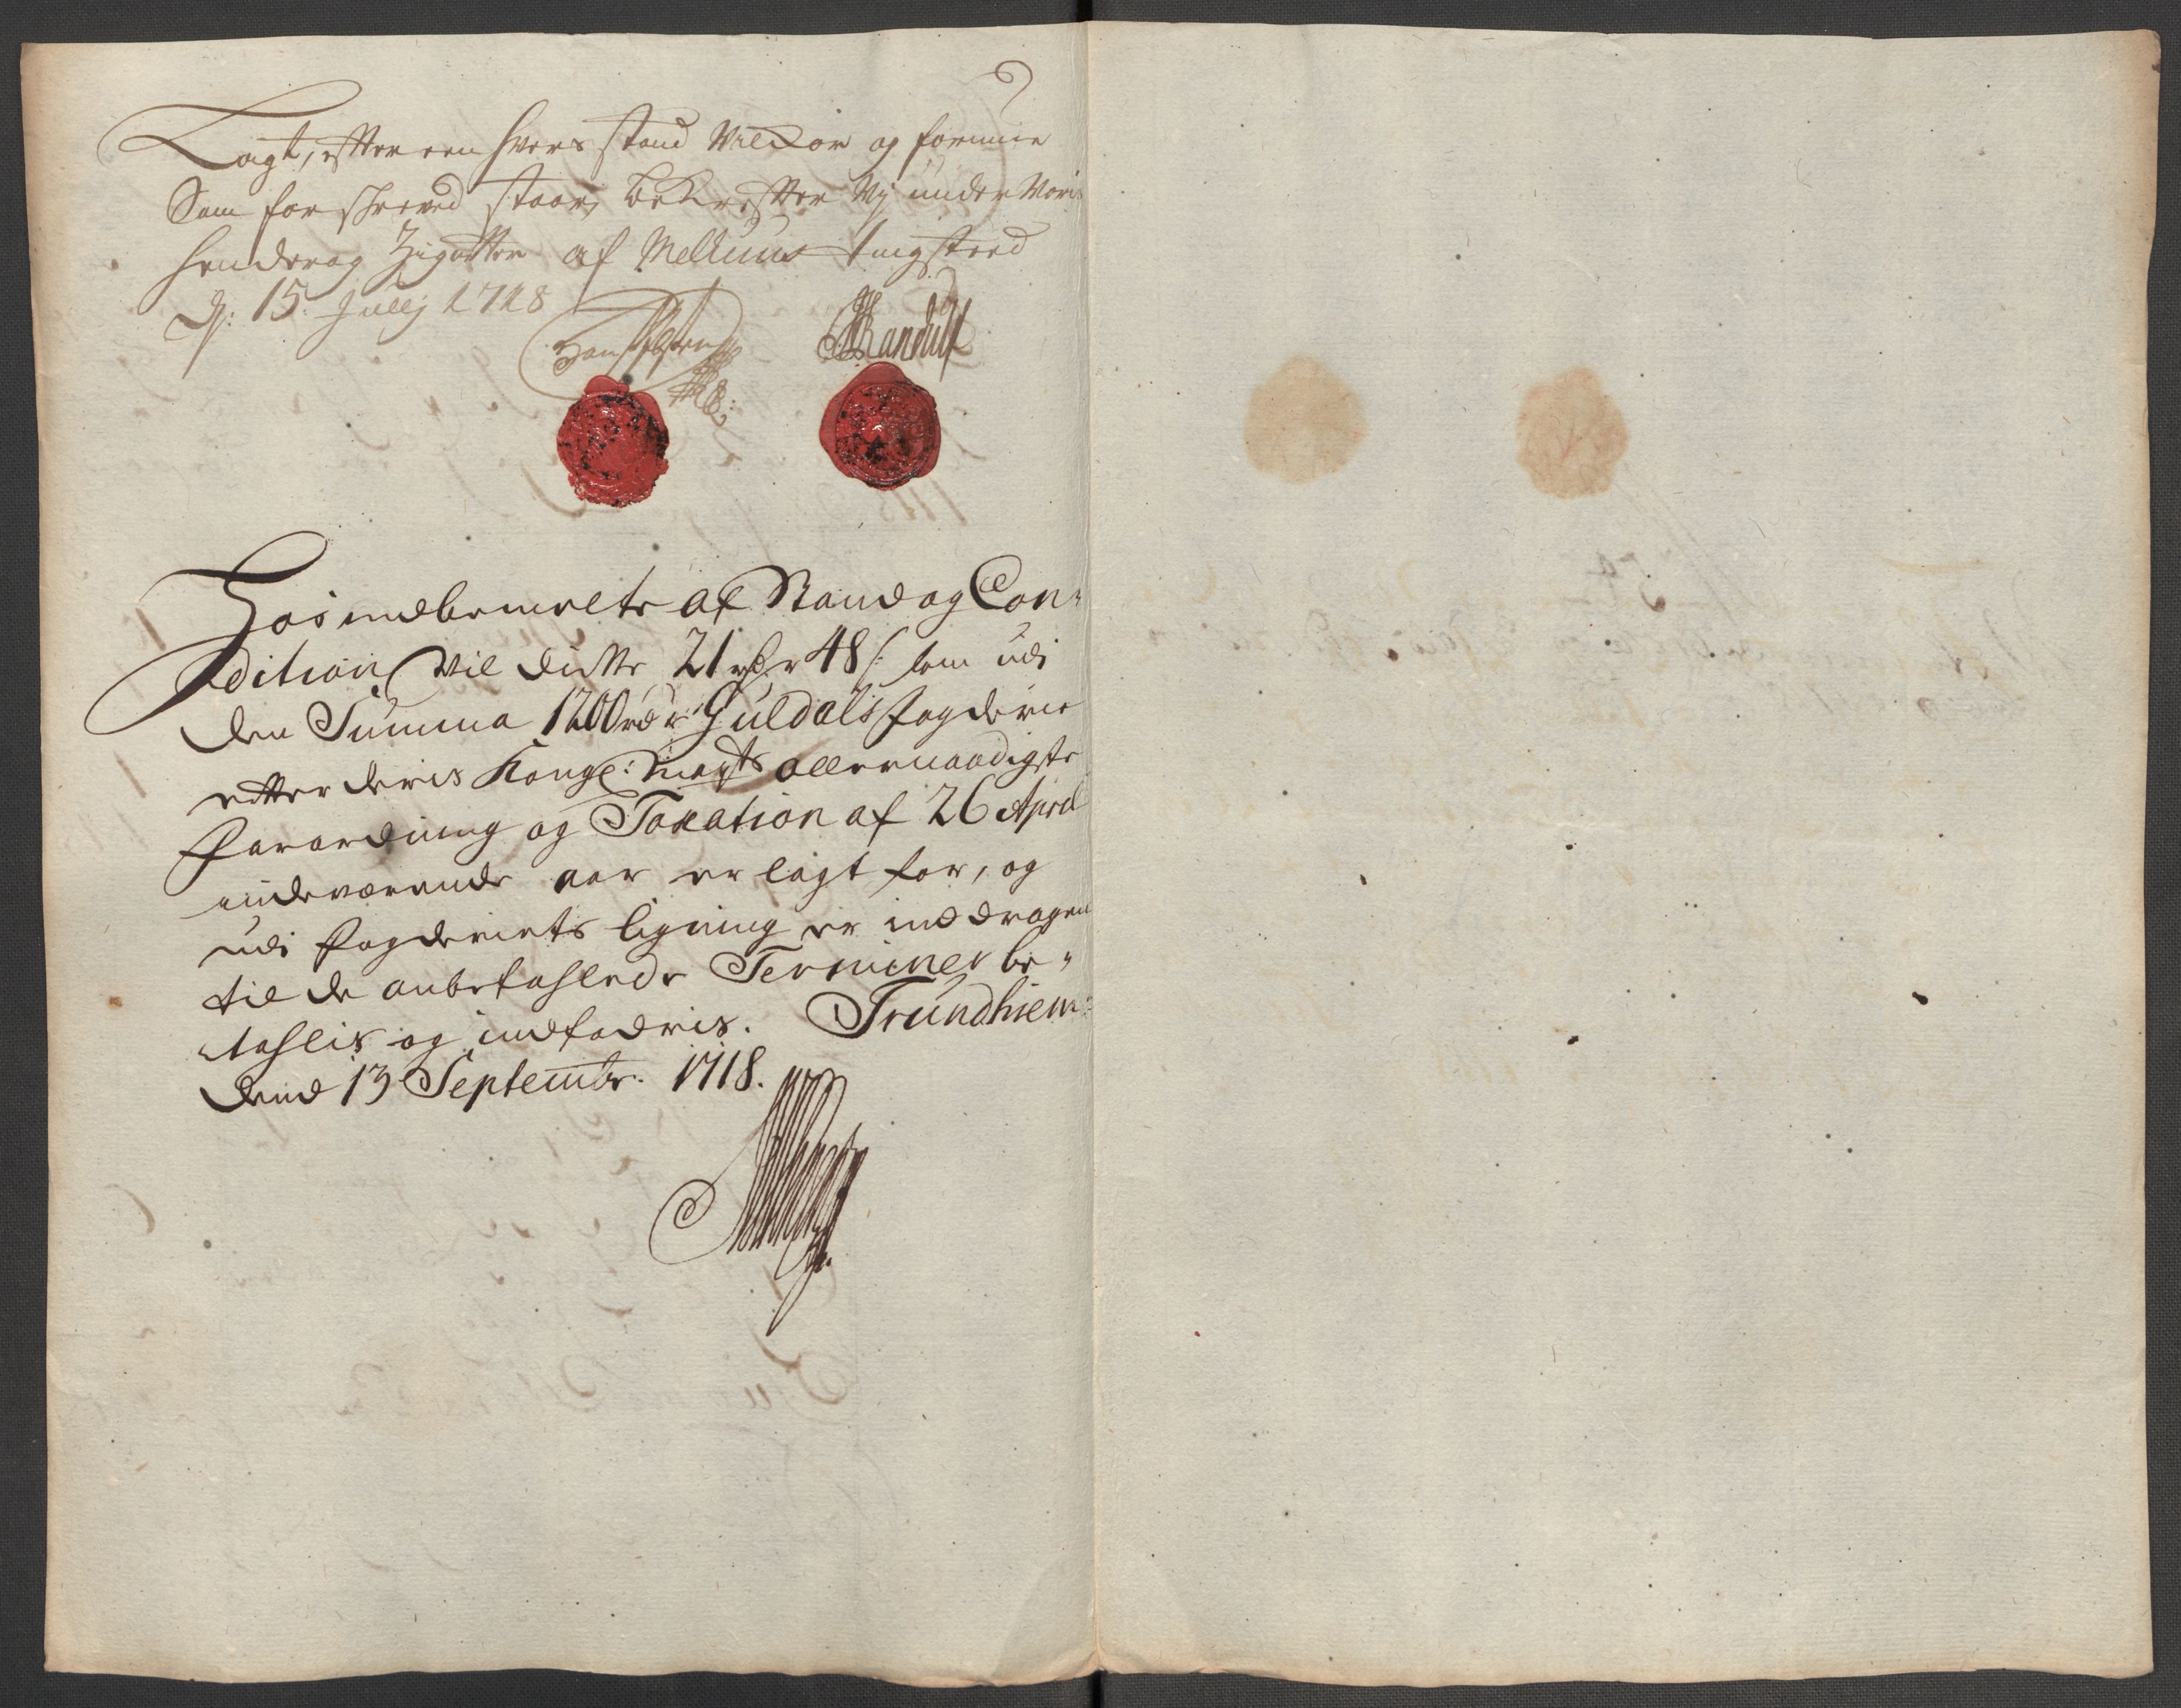 Lagt, efter een hvers stand Vilckor og formue
Som forskreved staar, bekrefter Vj under Voris
hender og Zigneter af Melhuus tingsteed
D: 15 Julij 1718
Hosindbemelte af Stand og Con-
dition, Vil dette 21 rdr 48 s: som udi
den Summa 1200 rdr Guldals fogderie
efter deris Kongl: Mayts allernaadigste
forordning og Taxation af 26 April
indeværende aar er lagt for, og
udi fogderiets ligning er inddragen
til de anbefahlede Terminer be-
tahlis og indfodris. Trundhiem
dend 13 Septembr: 1718.